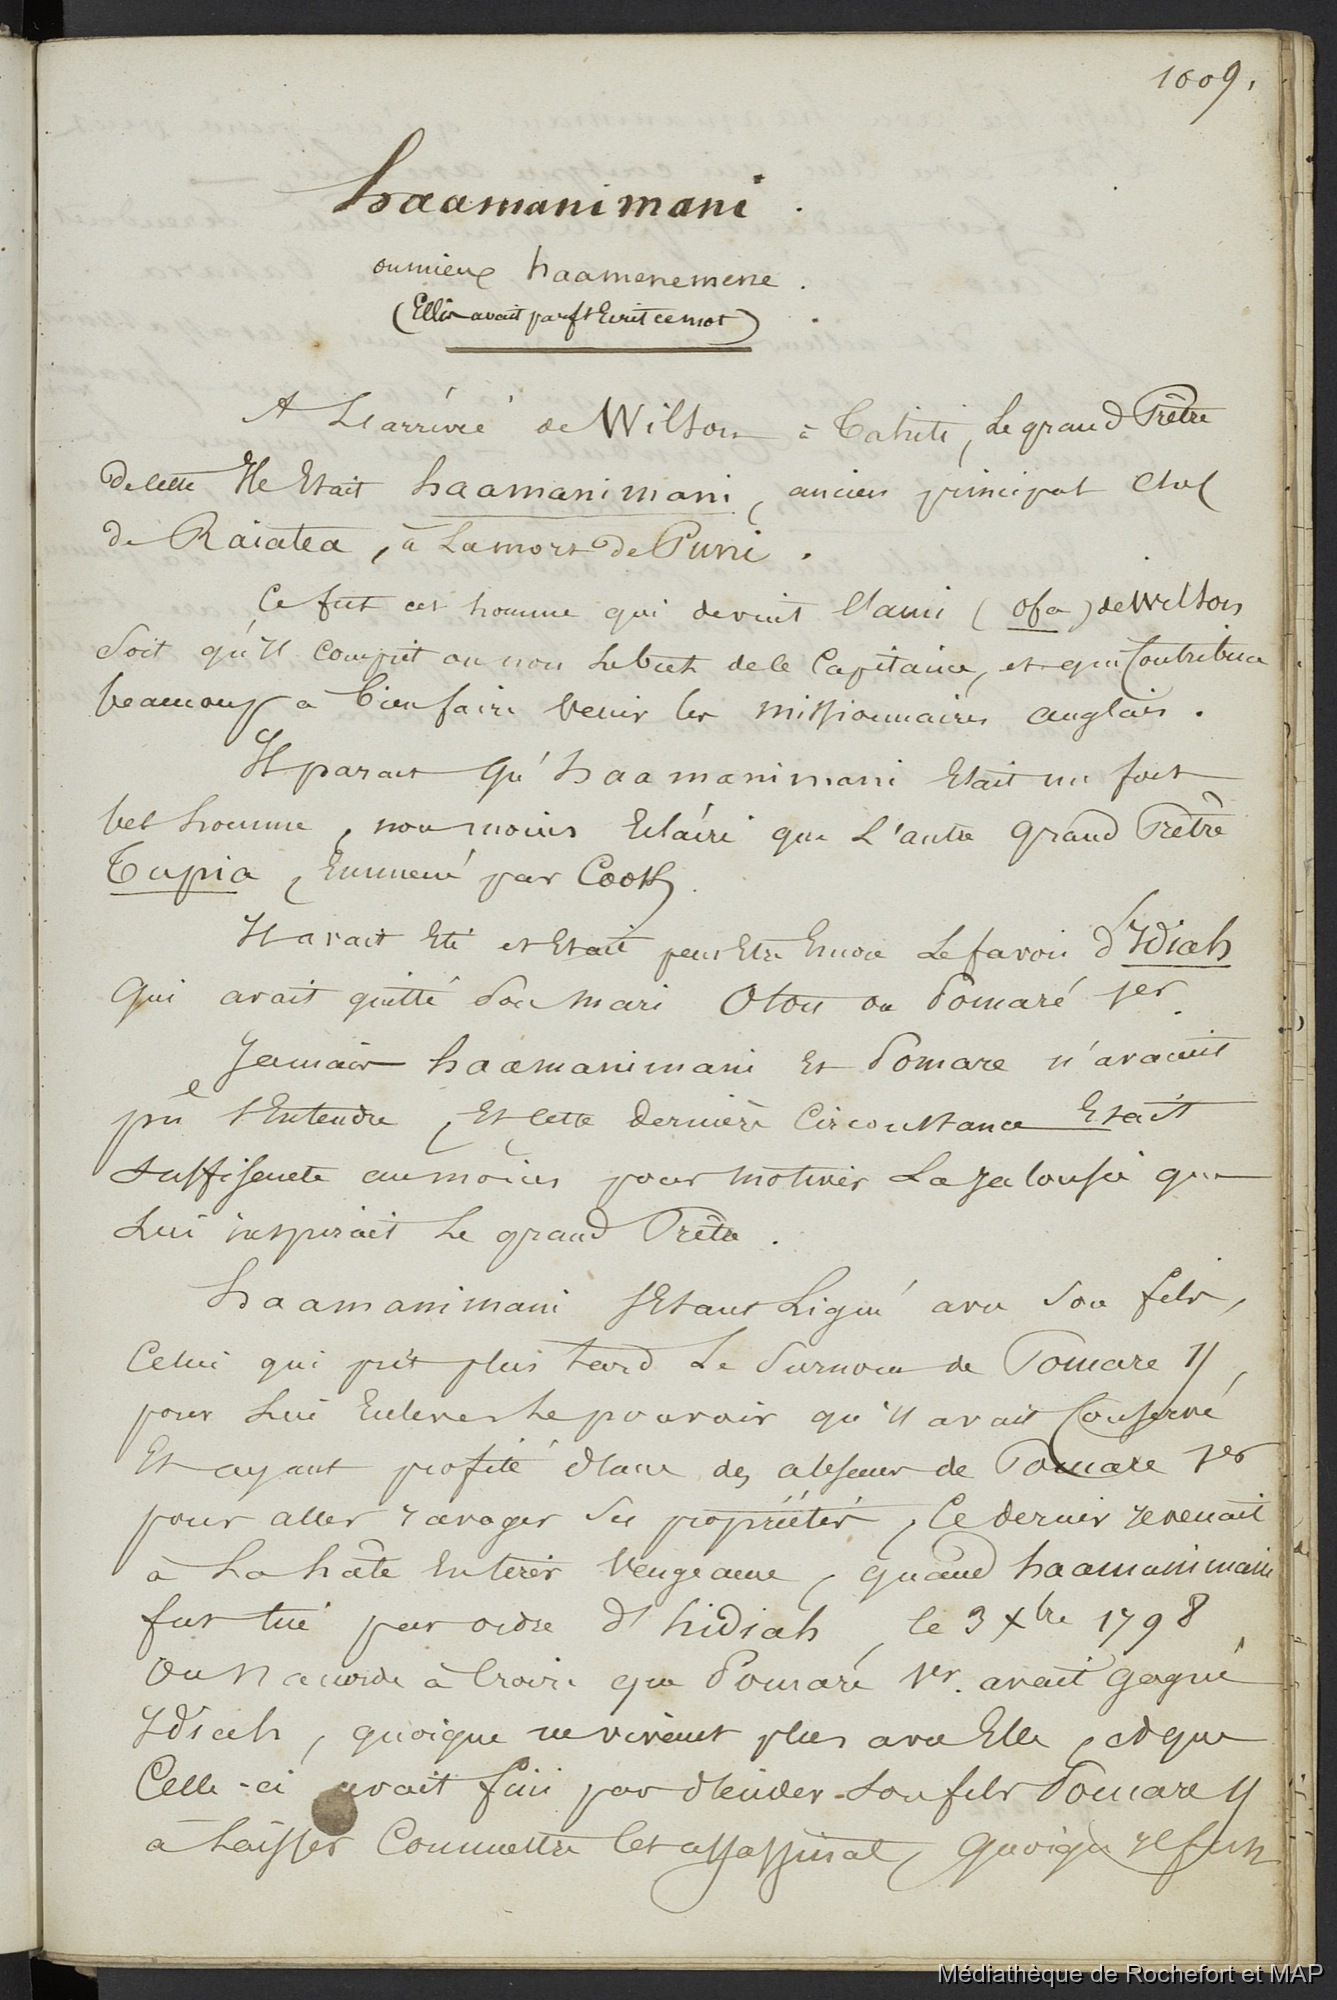 1009.
haamanimani.
ou mieux haamenemene.
(Ellis avait parfs Ecrit ce mot)
A L'arrivée de Wilson à Tahiti, Le grand Prêtre
de cette Ile Etait haamanimani, ancien principal Chef
de Raiatea, à La mort de Puni.
Ce fut cet homme qui devint l'ami (ofa) de Wilson
Soit qu'Il comprit ou non Le but de le Capitaine, et qui Contribua
beaucoup a bien faire venir les missionnaires anglais.
Il parait qu'haamanimani Etait un fort
bel homme, non moins Eclairé que L'autre grand Prêtre
Tupia, Emmené par Cook.
Il avait Eté et Etait peut Etre Encore Le favori d'Idiah
qui avait quitté Son mari Otou ou Pomaré 1er.
Jamais haamanimani Et Pomare n'avaient
pu s'Entendre, Et cette dernière Circonstance Etait
suffisante au moins pour motiver La jalousie que
Lui inspirait Le grand Prêtre.
haamanimani s'Etant Ligué avec Son fils,
Celui qui prit plus tard Le Surnom de Pomare II,
pour Lui Enlever Le pouvoir qu'Il avait Conservé
Et ayant profité d'une des absences de Pomare 1er
pour aller ravager Ses propriétés, Ce dernier revenait
à La hâte En tirer Vengeance, quand haamanimani
fut tué par ordre d'hidiah, le 3 Xbre 1798
On s'accorde à Croire que Pomaré 1er. avait gagné
Idiah, quoique ne vivant plus avec Elle, et que
Celle-ci avait fini par décider Son fils Pomare II
à Laisser Commettre Cet assassinat, quoiqu'Il fut
Médiathèque de Rochefort et MAP